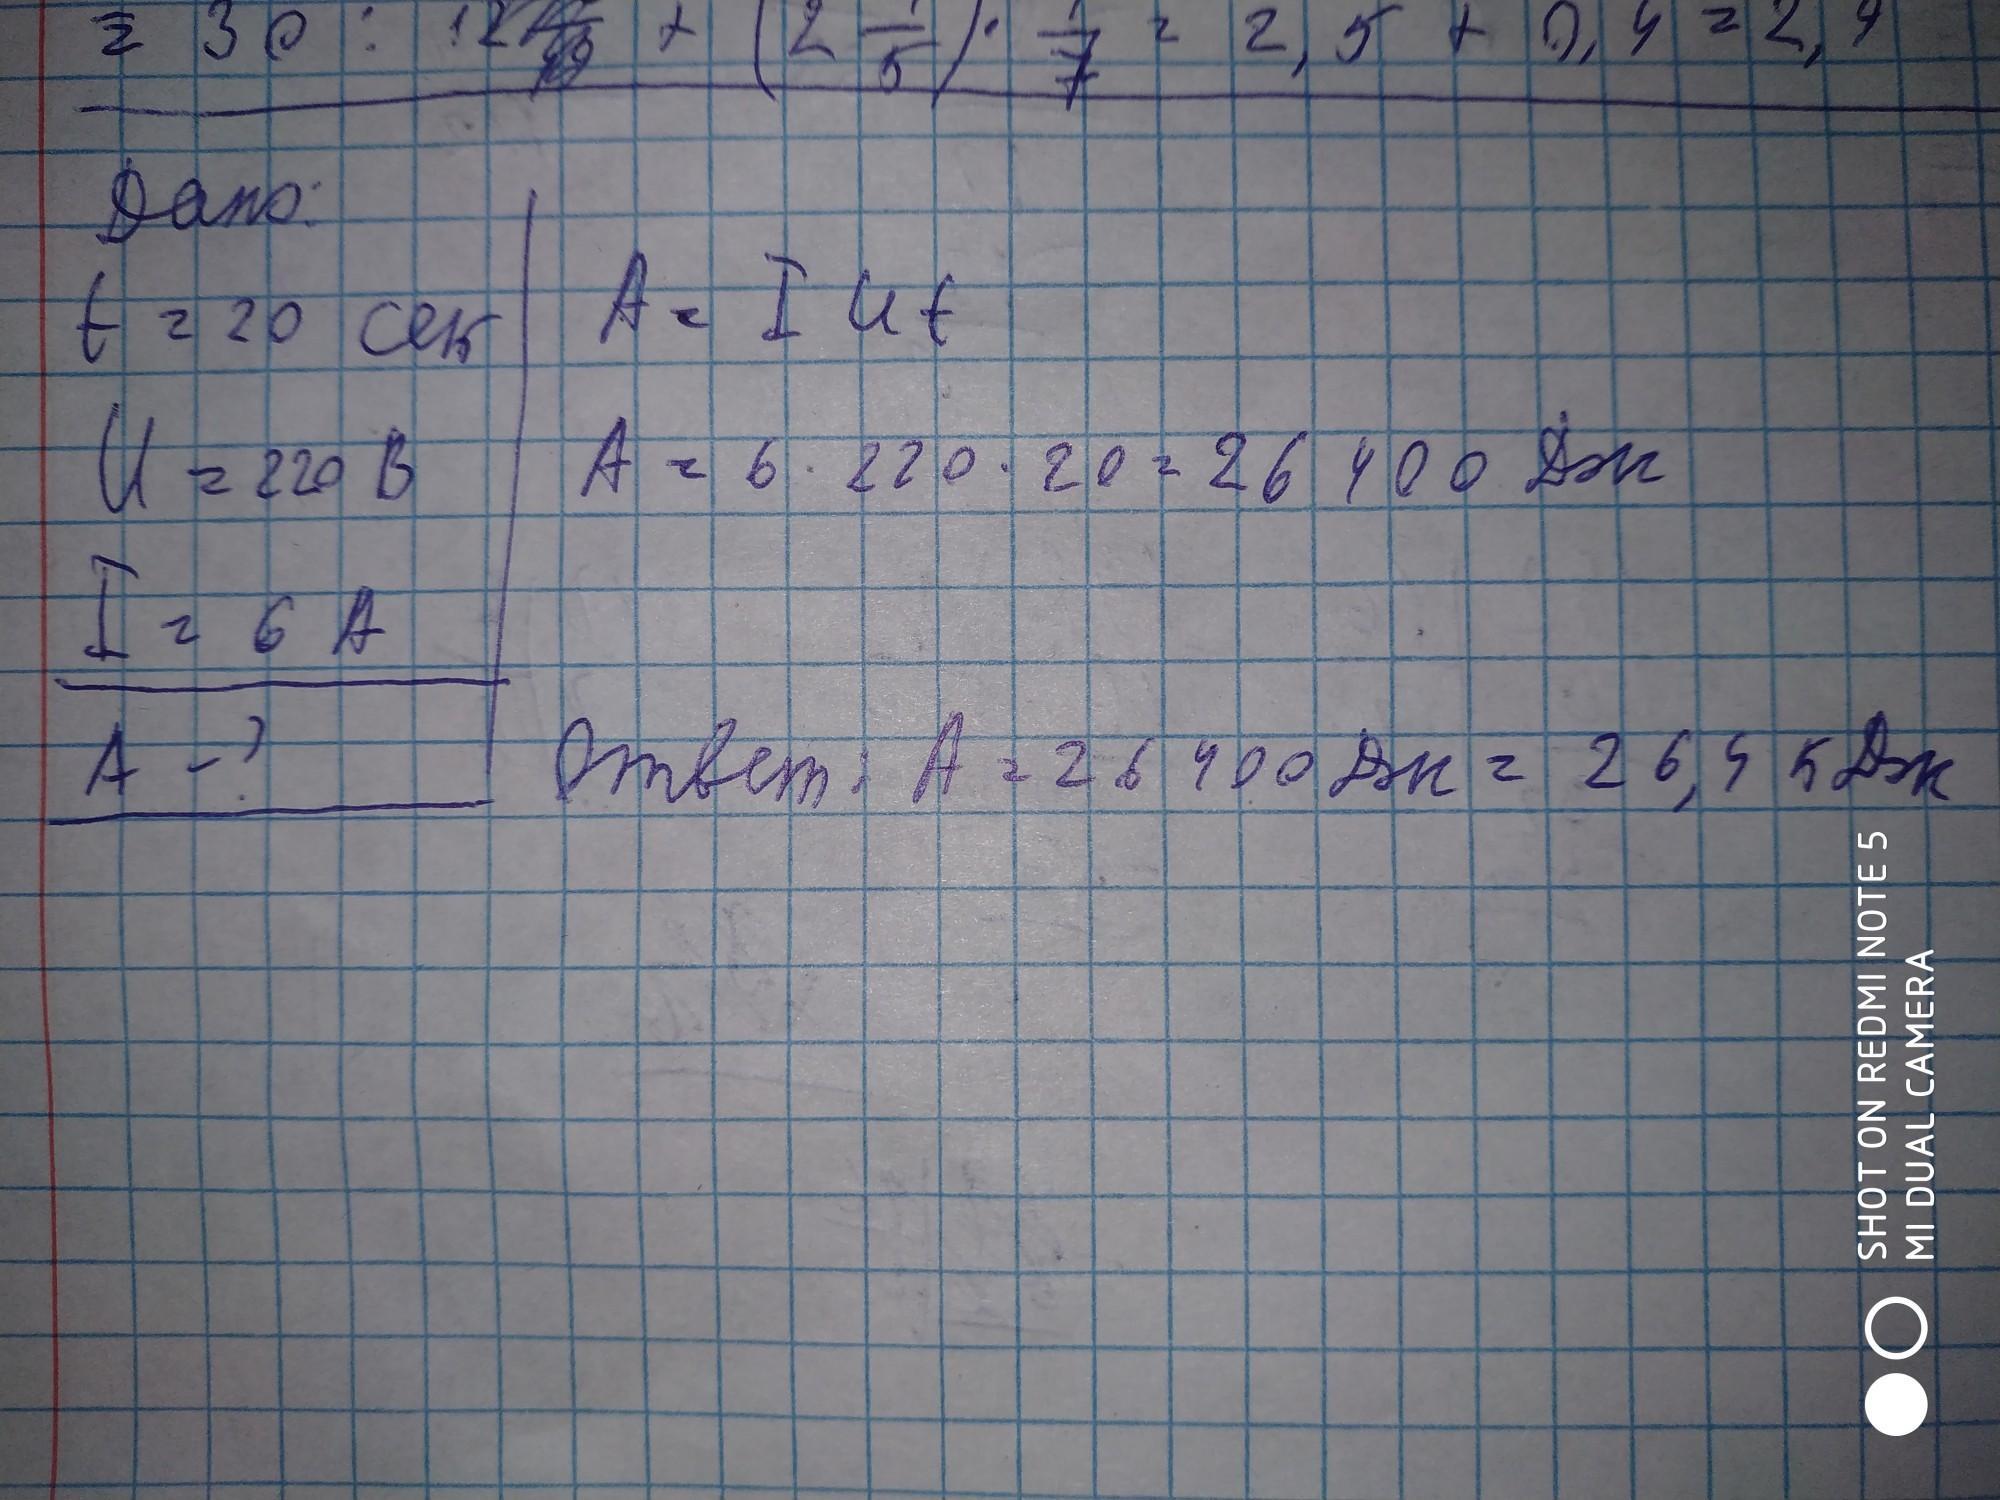 = 30 : 12 + (2 1/5) · 1/7 = 2,5 + 0,4 = 2,9
Дано:
t = 20 сек
U = 220 В
I = 6 А
А - ?
A = I U t
A = 6 · 220 · 20 = 26 400 Дж
Ответ: А = 26 400 Дж = 26,4 кДж
SHOT ON REDMI NOTE 5
MI DUAL CAMERA